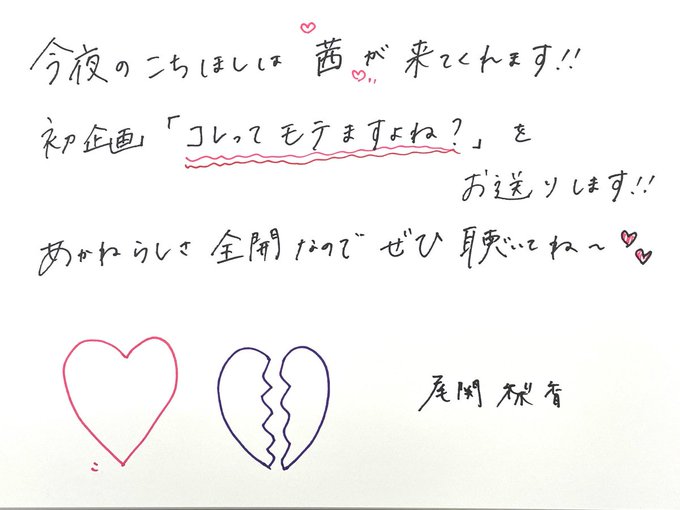 今夜のこちほしは茜が来てくれます!!
初企画「コレってモテますよね?」を
お送りします!!
あかねらしさ全開なのでぜひ聴いてね〜
尾関梨香